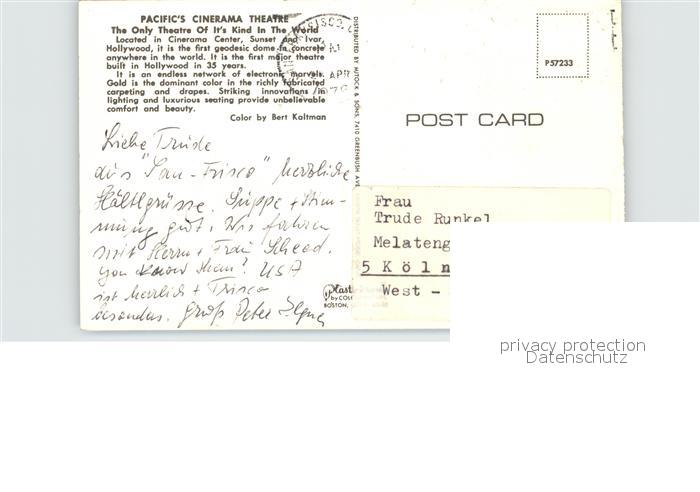 PACIFIC'S CINERAMA THEATRE
The Only Theatre Of It's Kind In The World
Located in Cinerama Center, Sunset and Ivar,
Hollywood, it is the first geodesic dome in concrete
anywhere in the world. It is the first major theatre
built in Hollywood in 35 years.
It is an endless network of electronic marvels.
Gold is the dominant color in the richly fabricated
carpeting and drapes. Striking innovations in
lighting and luxurious seating provide unbelievable
comfort and beauty.
Color by Bert Kaltman
APR
Liebe Trude
aus "San-Frisco" herzliche
Suppe + Stim-
mung gut! Wir fahren
mit Herrn + Frau
you know them? USA
ist herrlich + Frisco
besonders. Gruß Peter
DISTRIBUTED BY MITOCK & SONS, 7410 GREENBUSH AVE.
Plast
by COL
BOSTON,
P57233
POST CARD
Frau
Trude Runkel
Melateng
5 Köln
West -
privacy protection
Datenschutz